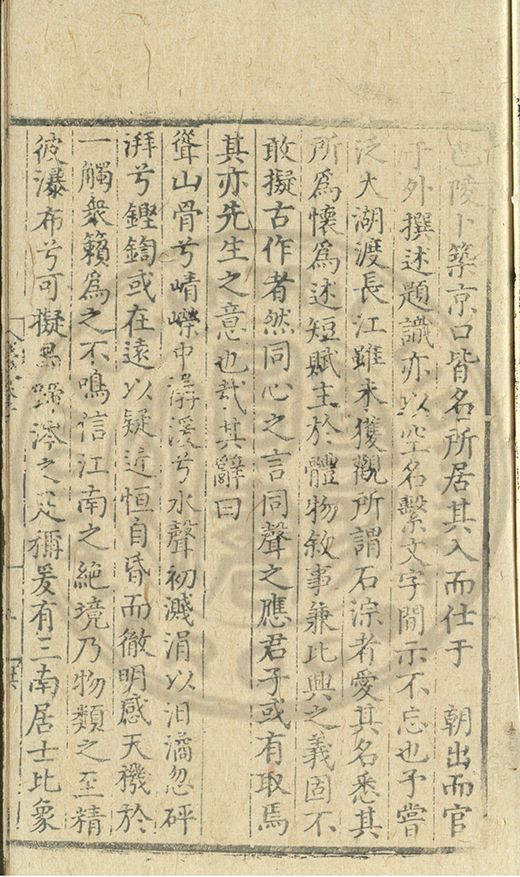 巴陵卜築京口皆名所居其入而仕于　朝出而官
于外撰述題識亦以空名繫文字間示不忘也予嘗
泛大湖渡長江雖未獲觀所謂石淙者愛其名悉其
所爲懷爲述短賦主於體物敘事兼比興之義固不
敢擬古作者然同心之言同聲之應君子或有取焉
其亦先生之意也哉其辭曰
聳山骨兮崝嶸中潺湲兮水聲初濺涓以汨潏忽砰
湃兮鏗鍧或在遠以疑近恒自昏而徹明感天機於
一觸衆籟爲之不鳴信江南之絶境乃物類之至精
彼瀑布兮可擬豈蹄涔之足稱爰有三南居士比象